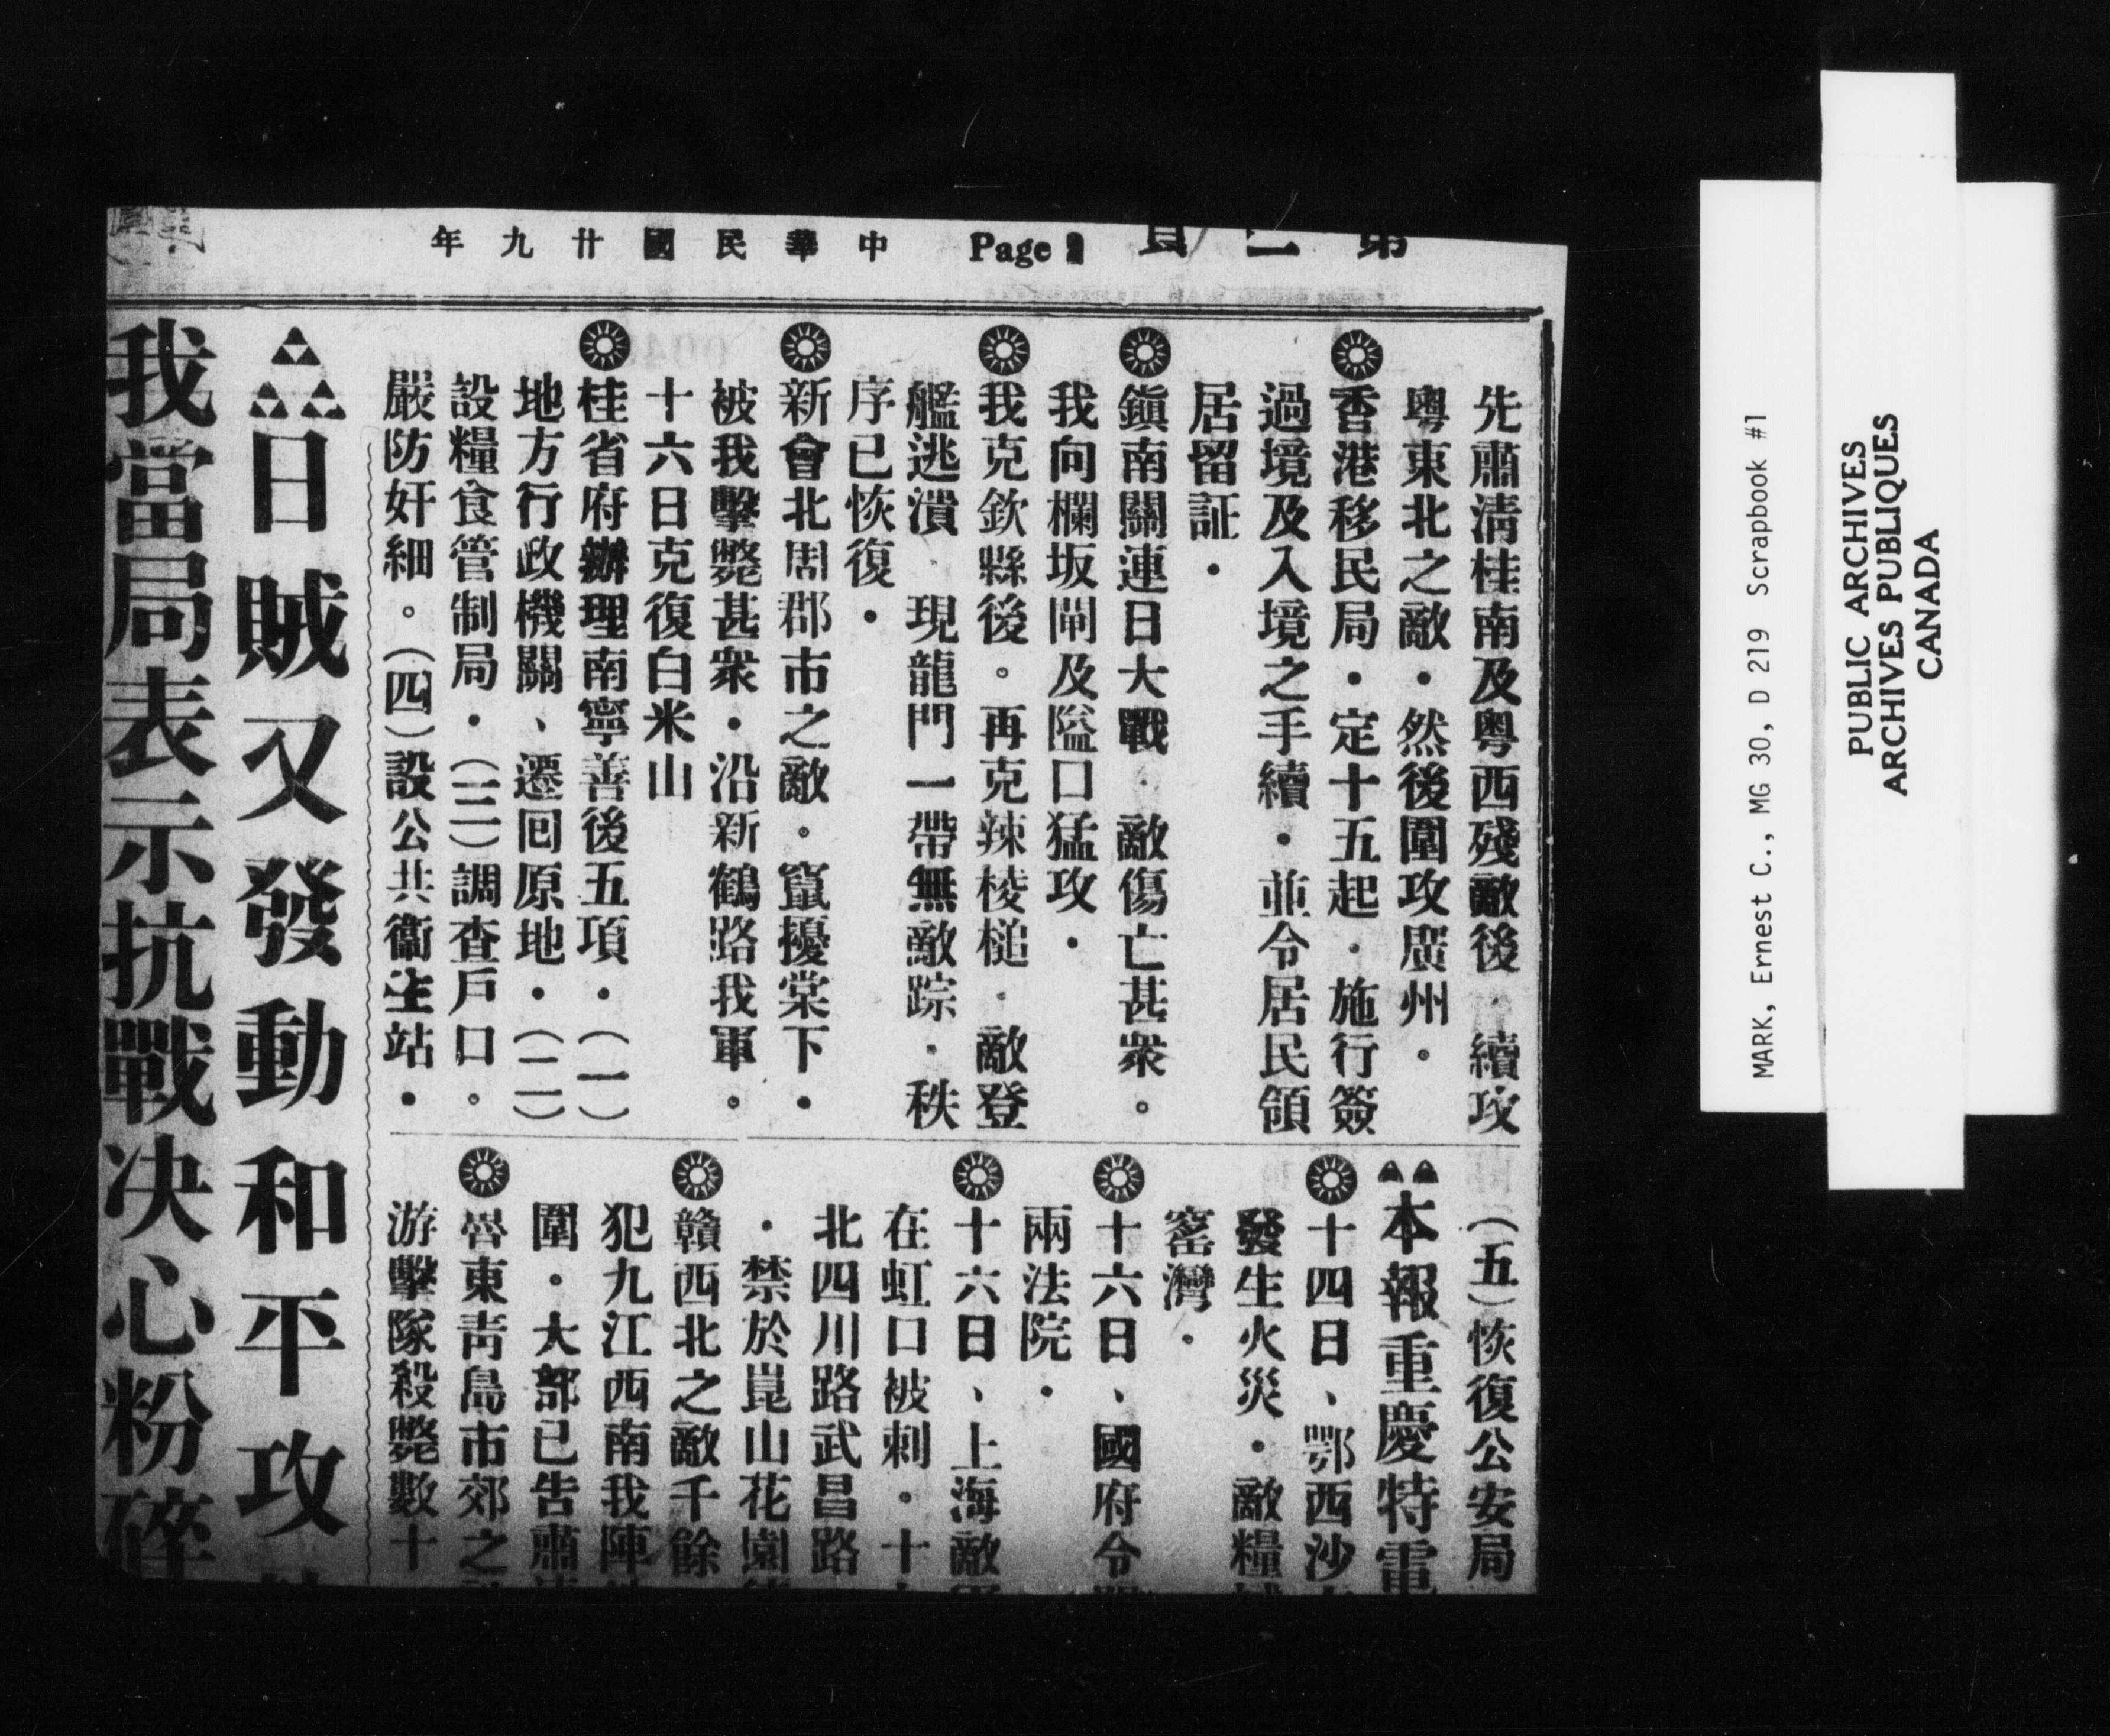 第二頁 Page 2 中華民國廿九年
先肅清桂南及粵西殘敵後．續攻
粵東北之敵．然後圍攻廣州．
香港移民局．定十五起．施行簽
過境及入境之手續．並令居民領
居留証．
鎭南關連日大戰．敵傷亡甚衆。
我向欄坂閘及隘口猛攻．
我克欽縣後。再克辣棱槌．敵登
艦逃潰．現龍門一帶無敵踪．秩
序已恢復．
新會北周郡市之敵。竄擾棠下．
被我擊斃甚衆．沿新鶴路我軍。
十六日克復白米山
桂省府辦理南寧善後五項．（一）
地方行政機關、遷囘原地．（二）
設糧食管制局．（三）調查戶口。
嚴防奸細。（四）設公共衞生站．
（五）恢復公安局
本報重慶特電
十四日、鄂西沙
發生火災．敵糧
窰灣．
十六日、國府令
兩法院．
十六日、上海敵
在虹口被刺。十
北四川路武昌路
．禁於崑山花園
贛西北之敵千餘
犯九江西南我陣
圍．大部已告肅
魯東靑島市郊之
游擊隊殺斃數十
日賊又發動和平攻
我當局表示抗戰决心粉碎
MARK, Ernest C., MG 30, D 219 Scrapbook #1
PUBLIC ARCHIVES
ARCHIVES PUBLIQUES
CANADA